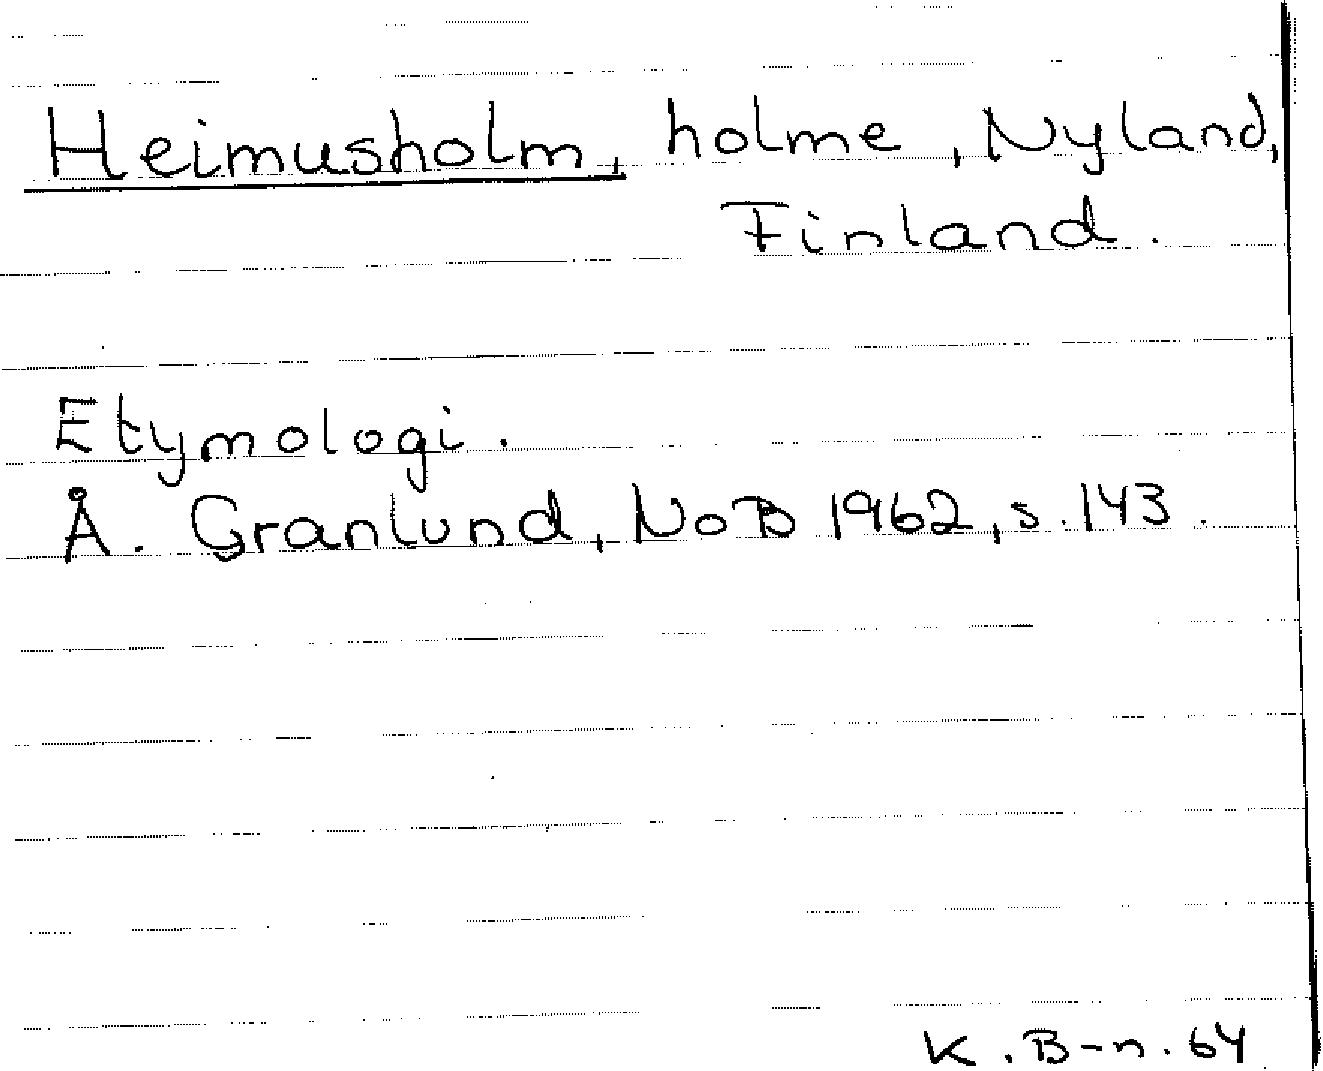 Heimusholm, holme, Nyland,
Finland.
Etymologi.
Å. Granlund, NoB 1962, s. 143.
K. B-n. 64